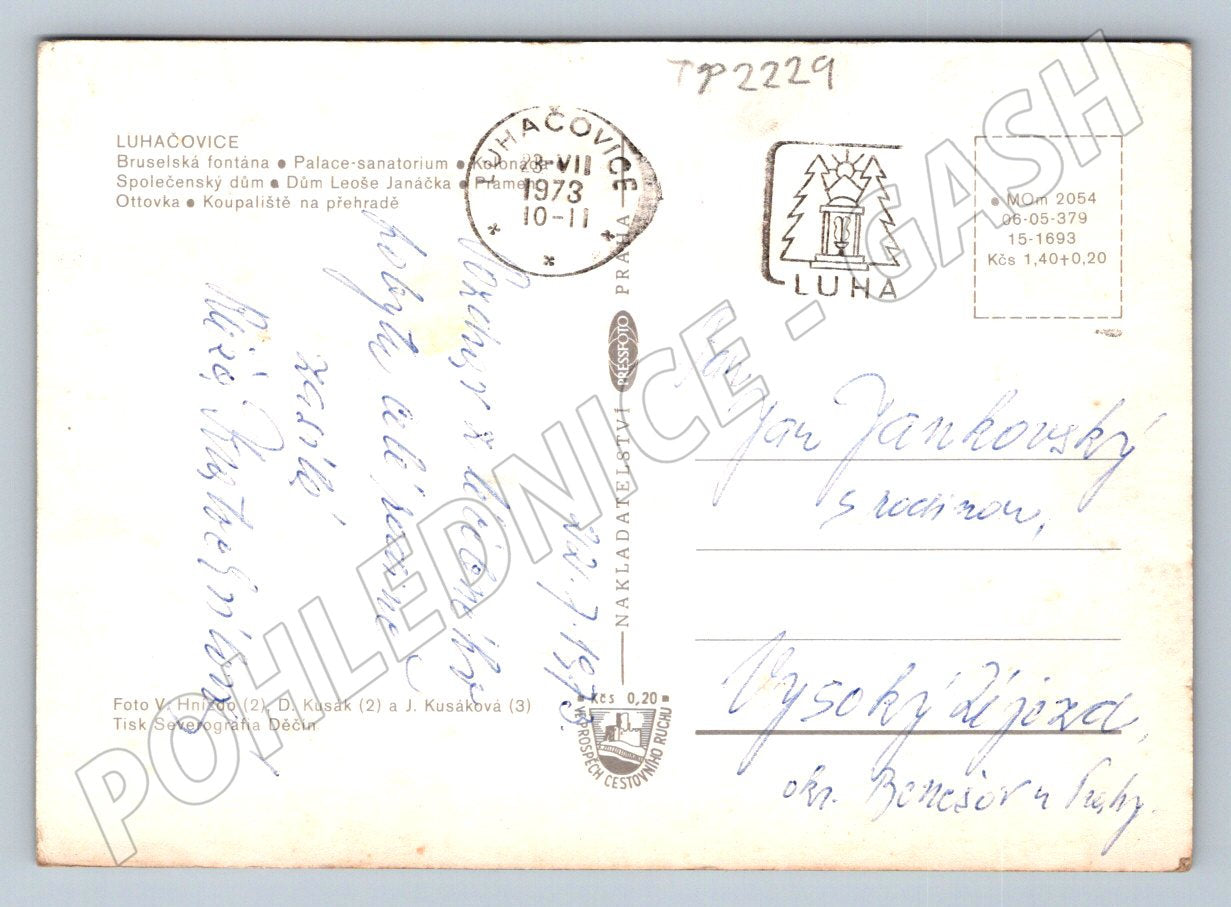 TP2229
LUHAČOVICE
Bruselská fontána ● Palace-sanatorium ● Kolonáda
Společenský dům ● Dům Leoše Janáčka ● Pramen
Ottovka ● Koupaliště na přehradě
LUHAČOVICE
23.VII
1973
10-11
LUHA
MOm 2054
06-05-379
15-1693
Kčs 1,40+0,20
NAKLADATELSTVÍ PRESSFOTO PRAHA
22.7.1973
zasílá
Jan Jankovský
s rodinou,
Vysoký Újezd,
okr. Benešov u Prahy.
Foto V. Hnízdo (2), D. Kusák (2) a J. Kusáková (3)
Tisk Severografia Děčín
Kčs 0,20
VE PROSPĚCH CESTOVNÍHO RUCHU
POHLEDNICE - GASH